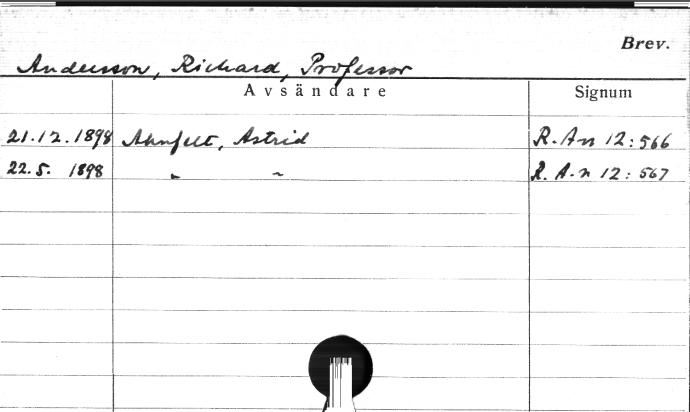 Brev.
Andersson, Richard, Professor
Avsändare Signum
21.12.1898 Ahnfelt, Astrid R.An 12:566
22.5. 1898 " " R.A.n 12:567